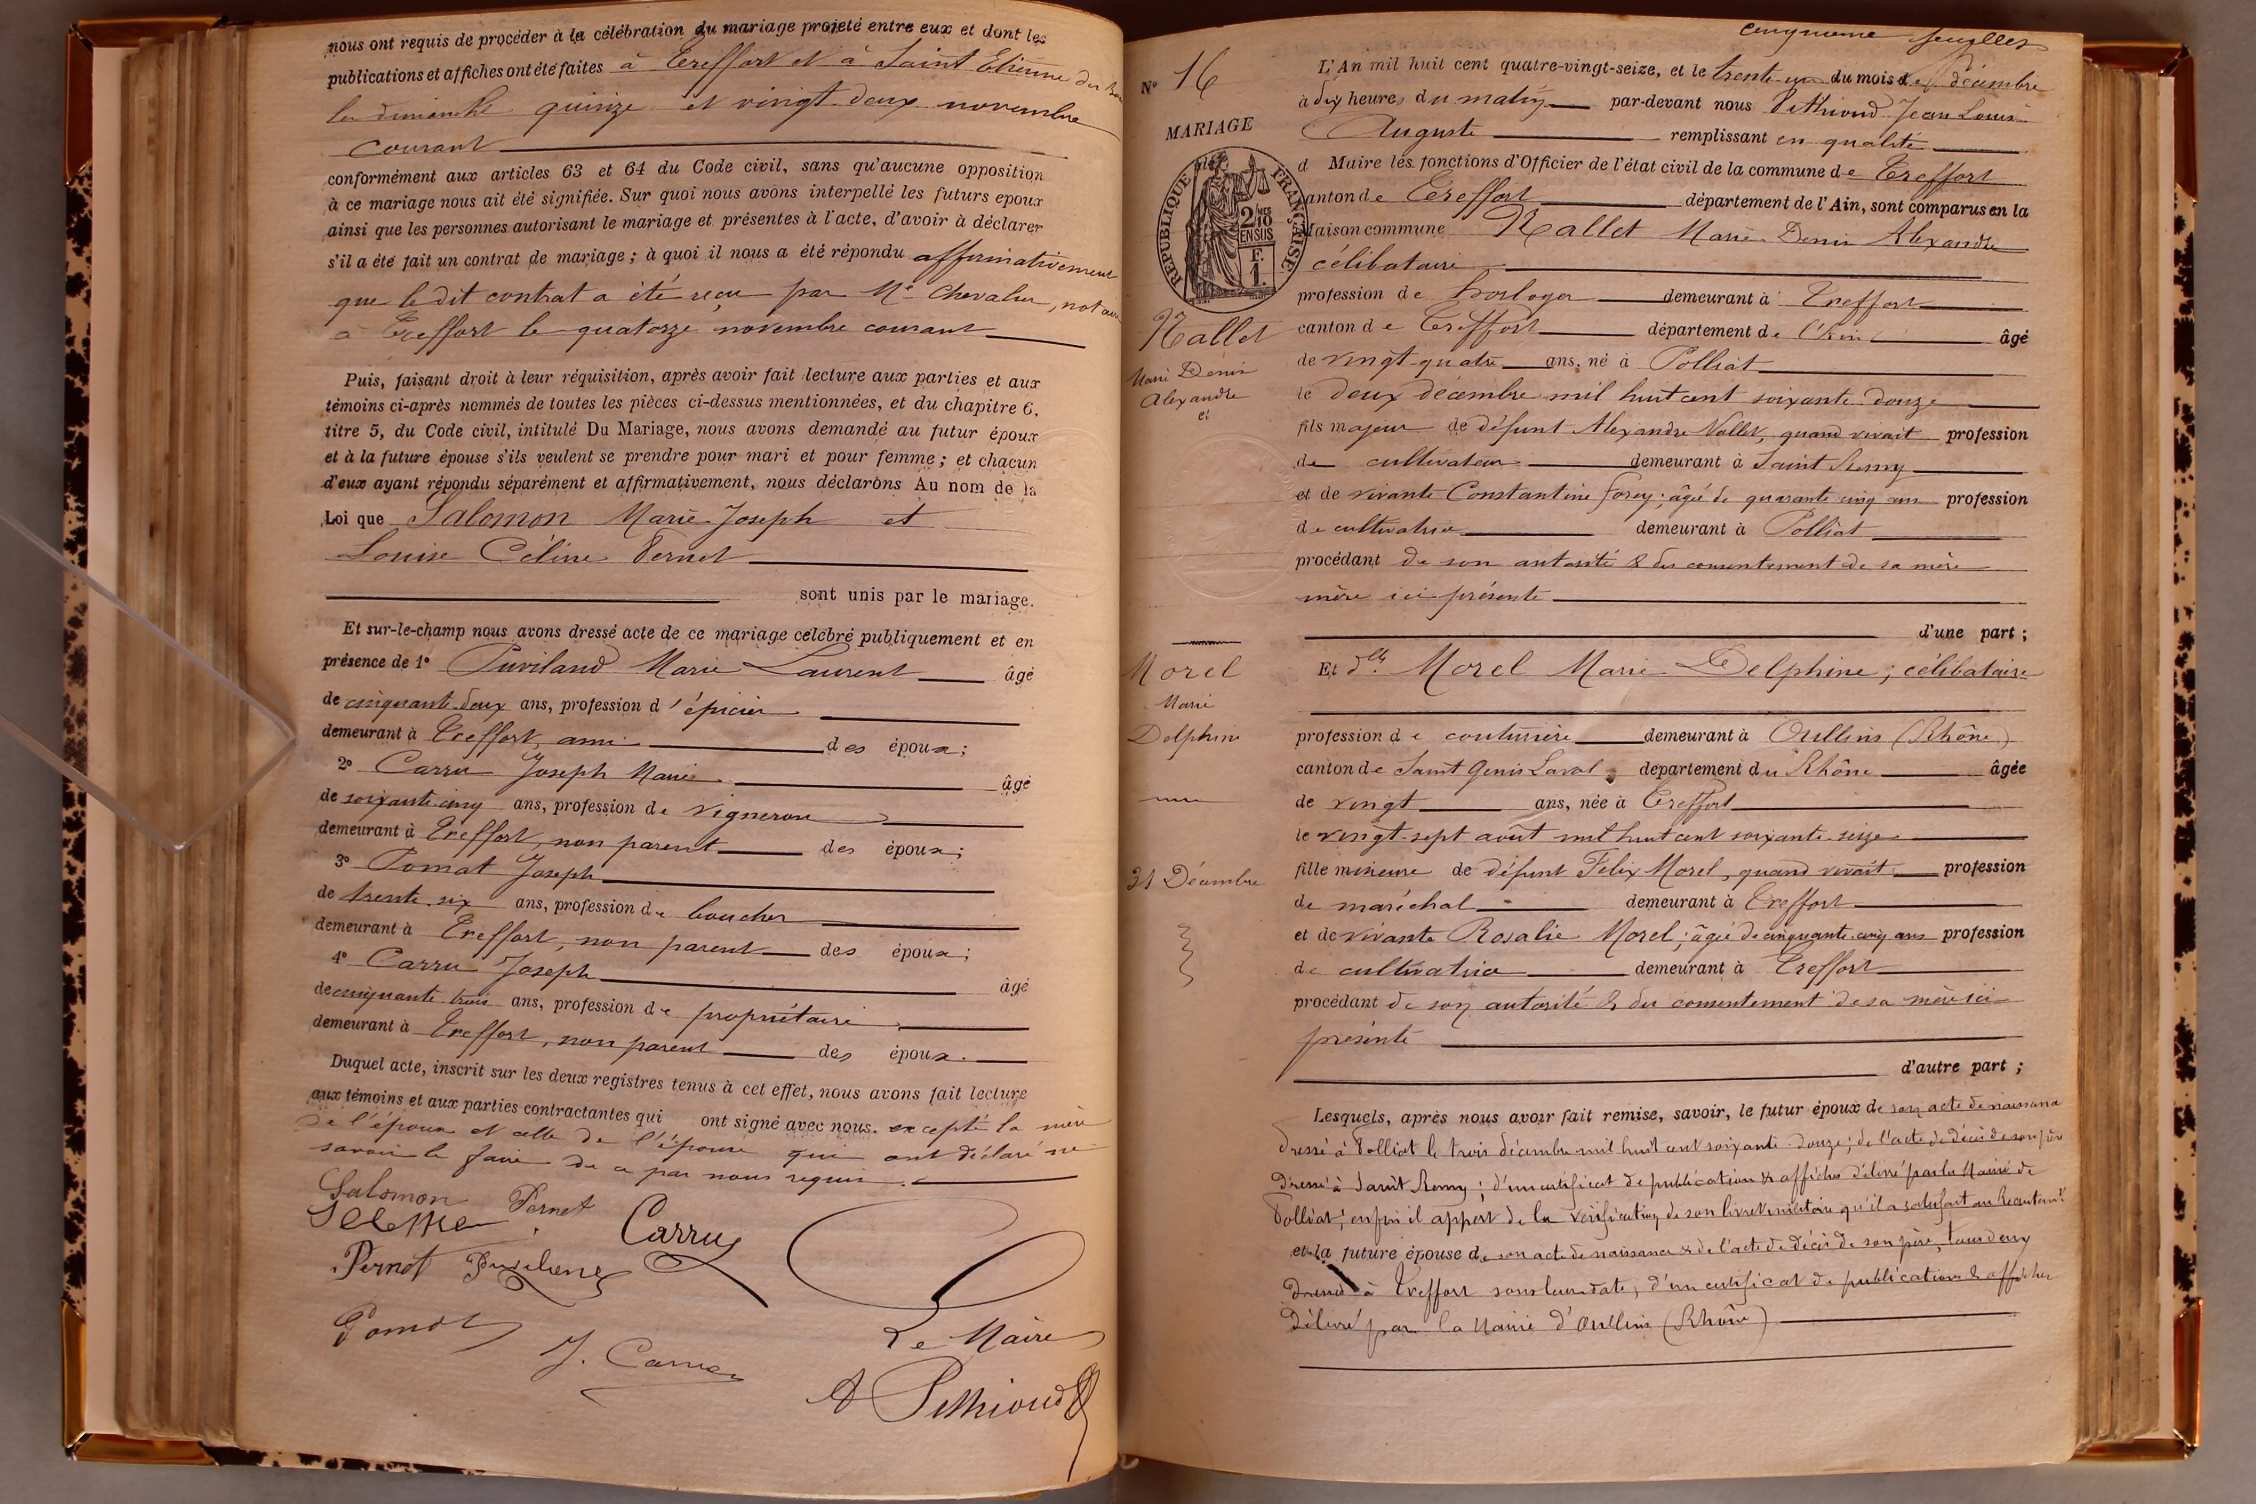 nous ont requis de procéder à la célébration du mariage projeté entre eux et dont les
publications et affiches ont été faites à Treffort et à Saint Etienne du Bois
les dimanche quinze et vingt-deux novembre
courant
conformément aux articles 63 et 64 du Code civil, sans qu'aucune opposition
à ce mariage nous ait été signifiée. Sur quoi nous avons interpellé les futurs epoux
ainsi que les personnes autorisant le mariage et présentes à l'acte, d'avoir à déclarer
s'il a été fait un contrat de mariage ; à quoi il nous a été répondu affirmativement
que le dit contrat a été reçu par Me Chevalier, notaire
à Treffort le quatorze novembre courant
Puis, faisant droit à leur réquisition, après avoir fait lecture aux parties et aux
témoins ci-après nommés de toutes les pièces ci-dessus mentionnées, et du chapitre 6,
titre 5, du Code civil, intitulé Du Mariage, nous avons demandé au futur époux
et à la future épouse s'ils veulent se prendre pour mari et pour femme ; et chacun
d'eux ayant répondu séparément et affirmativement, nous déclarons Au nom de la
Loi que Salomon Marie Joseph et
Louise Céline Pernet
sont unis par le mariage.
Et sur-le-champ nous avons dressé acte de ce mariage célébré publiquement et en
présence de 1° Puviland Marie Laurent âgé
de cinquante-deux ans, profession d'épicier
demeurant à Treffort, ami des époux ;
2° Carru Joseph Marie âgé
de soixante-cinq ans, profession de vigneron
demeurant à Treffort, non parent des époux ;
3° Pomat Joseph
de trente-six ans, profession de boucher
demeurant à Treffort, non parent des époux ;
4° Carru Joseph âgé
de cinquante-trois ans, profession de propriétaire
demeurant à Treffort, non parent des époux.
Duquel acte, inscrit sur les deux registres tenus à cet effet, nous avons fait lecture
aux témoins et aux parties contractantes qui ont signé avec nous. excepté la mère
de l'époux et celle de l'épouse qui ont déclaré ne
savoir le faire de ce par nous requis.
Salomon Pernet
Carru
Pernet
Pomat
J. Carru
Le Maire
A Pethioud
cinquième feuillet
N° 16
L'An mil huit cent quatre-vingt-seize, et le trente-un du mois de Décembre
à dix heures du matin par-devant nous Pethioud Jean Louis
Auguste remplissant en qualité
d Maire les fonctions d'Officier de l'état civil de la commune de Treffort
canton de Treffort département de l'Ain, sont comparus en la
Maison commune Nallet Marie Denis Alexandre
célibataire
profession de horloger demeurant à Treffort
canton de Treffort département de l'Ain âgé
de vingt-quatre ans, né à Polliat
le deux décembre mil huit cent soixante-douze
fils majeur de défunt Alexandre Nallet, quand vivait profession
de cultivateur demeurant à Saint Remy
et de vivante Constantine Forey ; âgée de quarante cinq ans profession
de cultivatrice demeurant à Polliat
procédant de son autorité & du consentement de sa mère
mère ici présente
d'une part ;
Et dlle Morel Marie Delphine ; célibataire
profession de couturière demeurant à Oullins (Rhône)
canton de Saint Genis Laval département du Rhône âgée
de vingt ans, née à Treffort
le vingt-sept août mil huit cent soixante-seize
fille mineure de défunt Félix Morel, quand vivait profession
de maréchal demeurant à Treffort
et de vivante Rosalie Morel ; âgée de cinquante-cinq ans profession
de cultivatrice demeurant à Treffort
procédant de son autorité & du consentement de sa mère ici
présente
d'autre part ;
Lesquels, après nous avoir fait remise, savoir, le futur époux de son acte de naissance
dressé à Polliat le trois décembre mil huit cent soixante-douze ; de l'acte de décès de son père
dressé à Saint Remy ; d'un certificat de publication & affiches délivré par la Mairie de
Polliat ; enfin il appert de la vérification de son livret militaire qu'il a satisfait au Recrutement
et la future épouse de son acte de naissance & de l'acte de décès de son père, tous deux
dressés à Treffort sous leur date ; d'un certificat de publication & affiches
délivré par la Mairie d'Oullins (Rhône)
MARIAGE
RÉPUBLIQUE FRANÇAISE
2 10
EN SUS
F.
1.
Nallet
Marie Denis
Alexandre
et
Morel
Marie
Delphine
31 Décembre